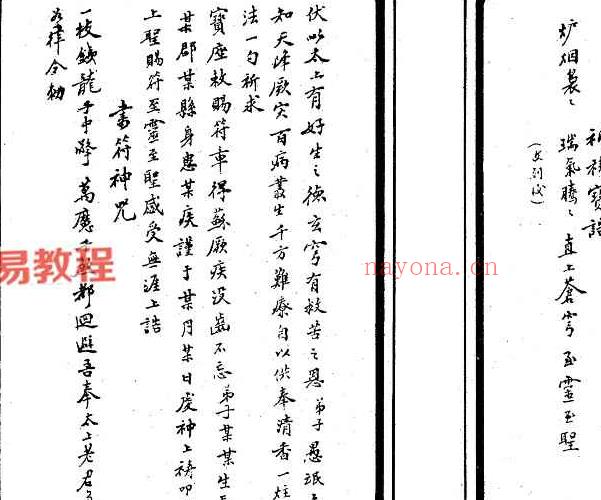 祝禱寶誥
炉烟裊々 瑞氣騰々 直上蒼穹 至靈至聖
(文到後)
伏以太上有好生之德玄穹有救苦之恩弟子愚氓
知天降厥灾百病叢生千方難療自以供奉清香一炷
法一勺祈求
寶座敕賜符車得蘇厥疾没齒不忘弟子某某生
某郡某縣身患某疾謹于某月某日虔神上禱叩
上聖賜符至靈至聖感受無涯上誥
書符神咒
一枝鉄龍手中擎萬應 都迴避吾奉太上老君
律令勅
易教程
nayona.cn